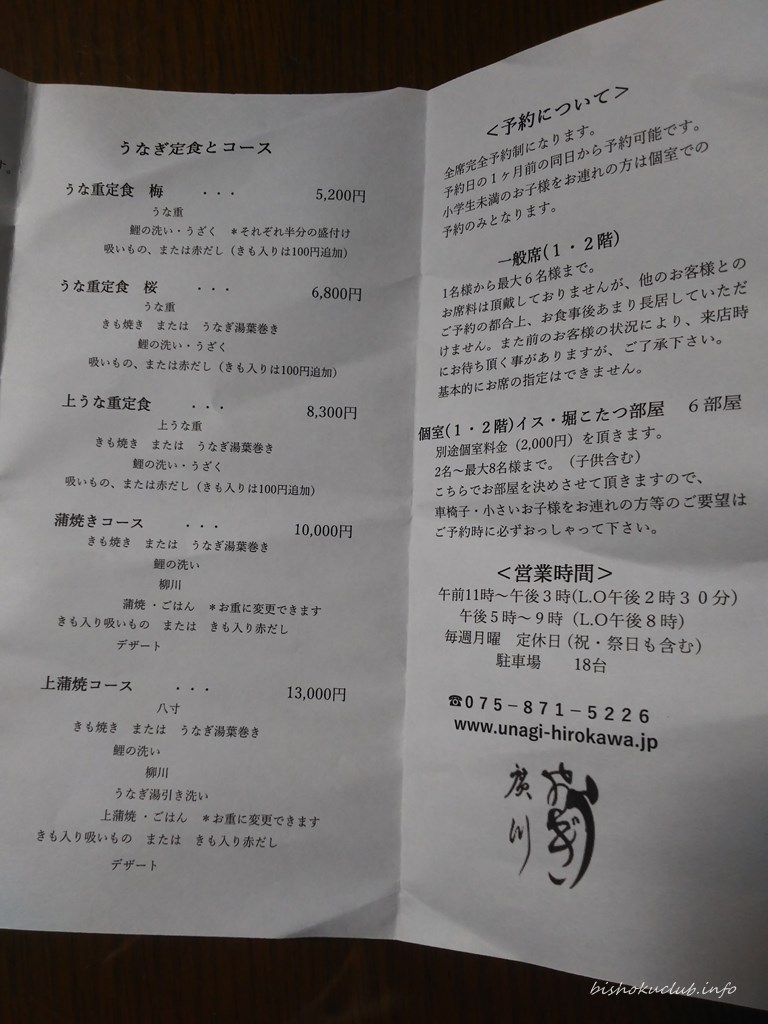 うなぎ定食とコース
うな重定食　梅　・・・　5,200円
うな重
鯉の洗い・うざく　＊それぞれ半分の盛付け
吸いもの、または赤だし（きも入りは100円追加）
うな重定食　桜　・・・　6,800円
うな重
きも焼き　または　うなぎ湯葉巻き
鯉の洗い・うざく
吸いもの、または赤だし（きも入りは100円追加）
上うな重定食　・・・　8,300円
上うな重
きも焼き　または　うなぎ湯葉巻き
鯉の洗い・うざく
吸いもの、または赤だし（きも入りは100円追加）
蒲焼きコース　・・・　10,000円
きも焼き　または　うなぎ湯葉巻き
鯉の洗い
柳川
蒲焼・ごはん　＊お重に変更できます
きも入り吸いもの　または　きも入り赤だし
デザート
上蒲焼コース　・・・　13,000円
八寸
きも焼き　または　うなぎ湯葉巻き
鯉の洗い
柳川
うなぎ湯引き洗い
上蒲焼・ごはん　＊お重に変更できます
きも入り吸いもの　または　きも入り赤だし
デザート
す。
＜予約について＞
全席完全予約制になります。
予約日の１ヶ月前の同日から予約可能です。
小学生未満のお子様をお連れの方は個室での
予約のみとなります。
一般席(１・２階)
1名様から最大６名様まで。
お席料は頂戴しておりませんが、他のお客様との
ご予約の都合上、お食事後あまり長居していただ
けません。また前のお客様の状況により、来店時
にお待ち頂く事がありますが、ご了承下さい。
基本的にお席の指定はできません。
個室(１・２階)イス・堀こたつ部屋　６部屋
別途個室料金（2,000円）を頂きます。
2名～最大8名様まで。（子供含む）
こちらでお部屋を決めさせて頂きますので、
車椅子・小さいお子様をお連れの方等のご要望は
ご予約時に必ずおっしゃって下さい。
＜営業時間＞
午前11時～午後３時(L.O午後２時３０分)
午後５時～９時（L.O午後８時)
毎週月曜　定休日(祝・祭日も含む)
駐車場　18台
☎075－871－5226
www.unagi-hirokawa.jp
うなぎ
廣川
bishokuclub.info